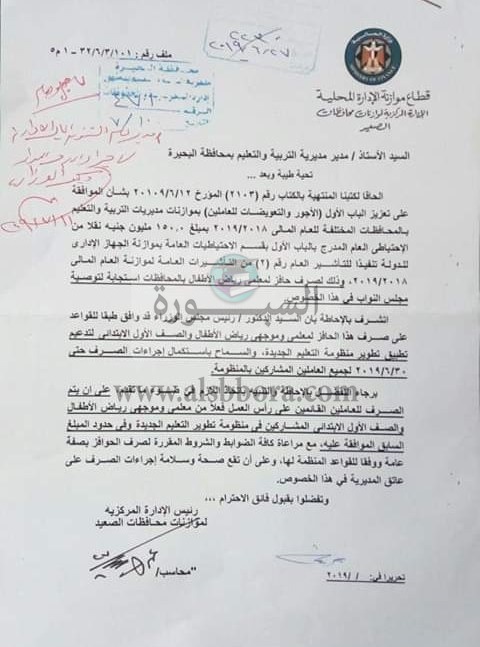 ملف رقم : ٣٢/٦/٣/١٠١ – ١ م٥
٢٠١٩/٦/٢٧
وزارة المالية
MINISTRY OF FINANCE
قطاع موازنة الإدارة المحلية
الإدارة المركزية لموازنات محافظات
الصعيد
محافظة البحيرة
السيد الأستاذ / مدير مديرية التربية والتعليم بمحافظة البحيرة
تحية طيبة وبعد ...
الحاقا لكتبنا المنتهية بالكتاب رقم (٢١٠٣) المؤرخ ٢٠١٠٩/٦/١٢ بشأن الموافقة
على تعزيز الباب الأول (الأجور والتعويضات للعاملين) بموازنات مديريات التربية والتعليم
بالمحافظات المختلفة للعام المالى ٢٠١٩/٢٠١٨ بمبلغ ١٥٠,٠ مليون جنيه نقلا من
الإحتياطى العام المدرج بالباب الأول بقسم الاحتياطيات العامة بموازنة الجهاز الإدارى
للدولة تنفيذا للتأشير العام رقم (٢) من التأشيرات العامة لموازنة العام المالى
٢٠١٩/٢٠١٨، وذلك لصرف حافز لمعلمى رياض الأطفال بالمحافظات استجابة لتوصية
مجلس النواب فى هذا الخصوص.
السبورة
اتشرف بالإحاطة بان السيد الدكتور / رئيس مجلس الوزراء قد وافق طبقا للقواعد
على صرف هذا الحافز لمعلمى وموجهى رياض الأطفال والصف الأول الابتدائى لتدعيم
تطبيق تطوير منظومة التعليم الجديدة، والسماح باستكمال إجراءات الصرف حتى
٢٠١٩/٦/٣٠ لجميع العاملين المشاركين بالمنظومة.
www.alsbbora.com
برجاء التفضل بالإحاطة والتنبيه باتخاذ اللازم فى ضوء ما تقدم على ان يتم
الصرف للعاملين القائمين على رأس العمل فعلاً من معلمى وموجهى رياض الأطفال
والصف الأول الابتدائى المشاركين فى منظومة تطوير التعليم الجديدة وفى حدود المبلغ
السابق الموافقة عليه، مع مراعاة كافة الضوابط والشروط المقررة لصرف الحوافز بصفة
عامة ووفقا للقواعد المنظمة لها، وعلى أن تقع صحة وسلامة إجراءات الصرف على
عاتق المديرية في هذا الخصوص.
وتفضلوا بقبول فائق الاحترام ...
رئيس الإدارة المركزيه
لموازنات محافظات الصعيد
"محاسب/
تحريرا فى : / /٢٠١٩